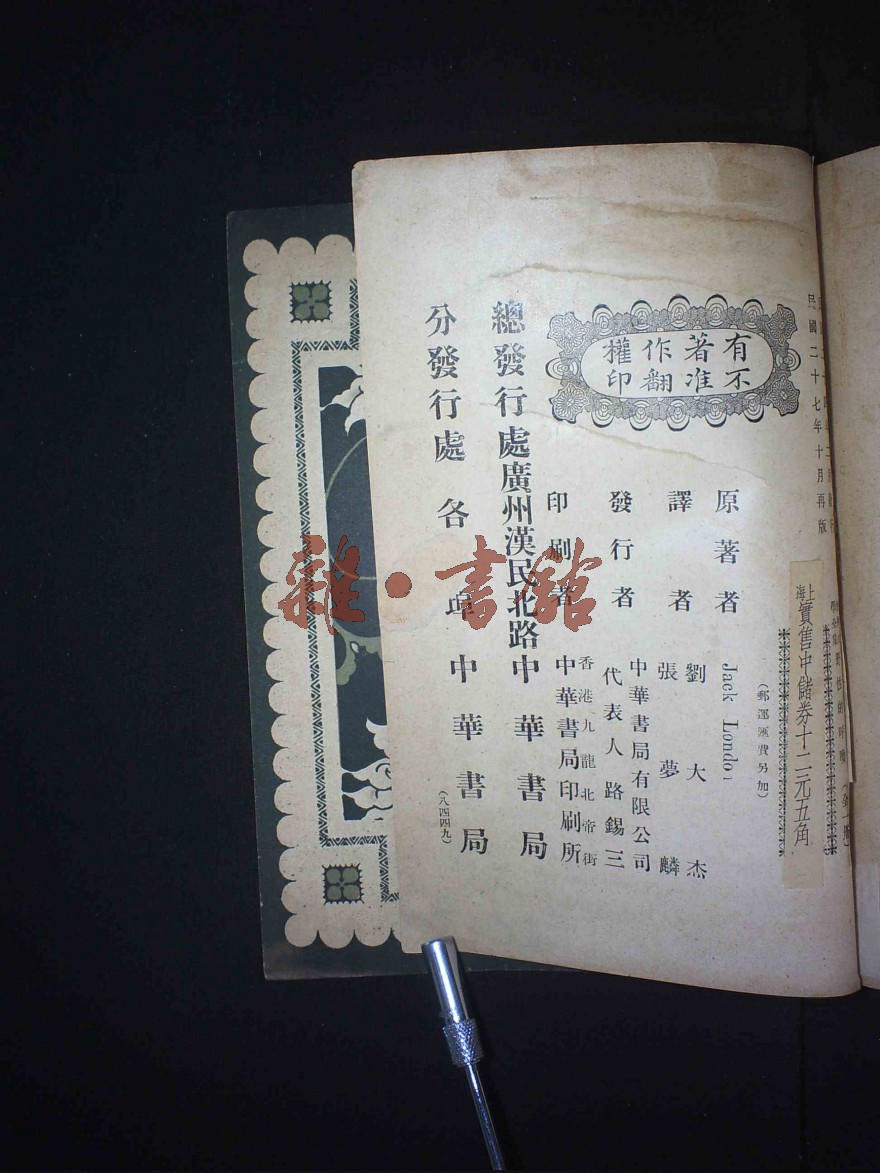 民國二十七年十月再版
上海實售中儲券十二元五角
野性的呼喚
(全一冊)
(郵運匯費另加)
有著作權
不准翻印
原著者 Jack London
譯者 劉大杰 張夢麟
發行者 中華書局有限公司 代表人路錫三
印刷者 香港九龍北帝街 中華書局印刷所
總發行處 廣州漢民北路 中華書局
分發行處 各埠中華書局
(八四四九)
雜·書館